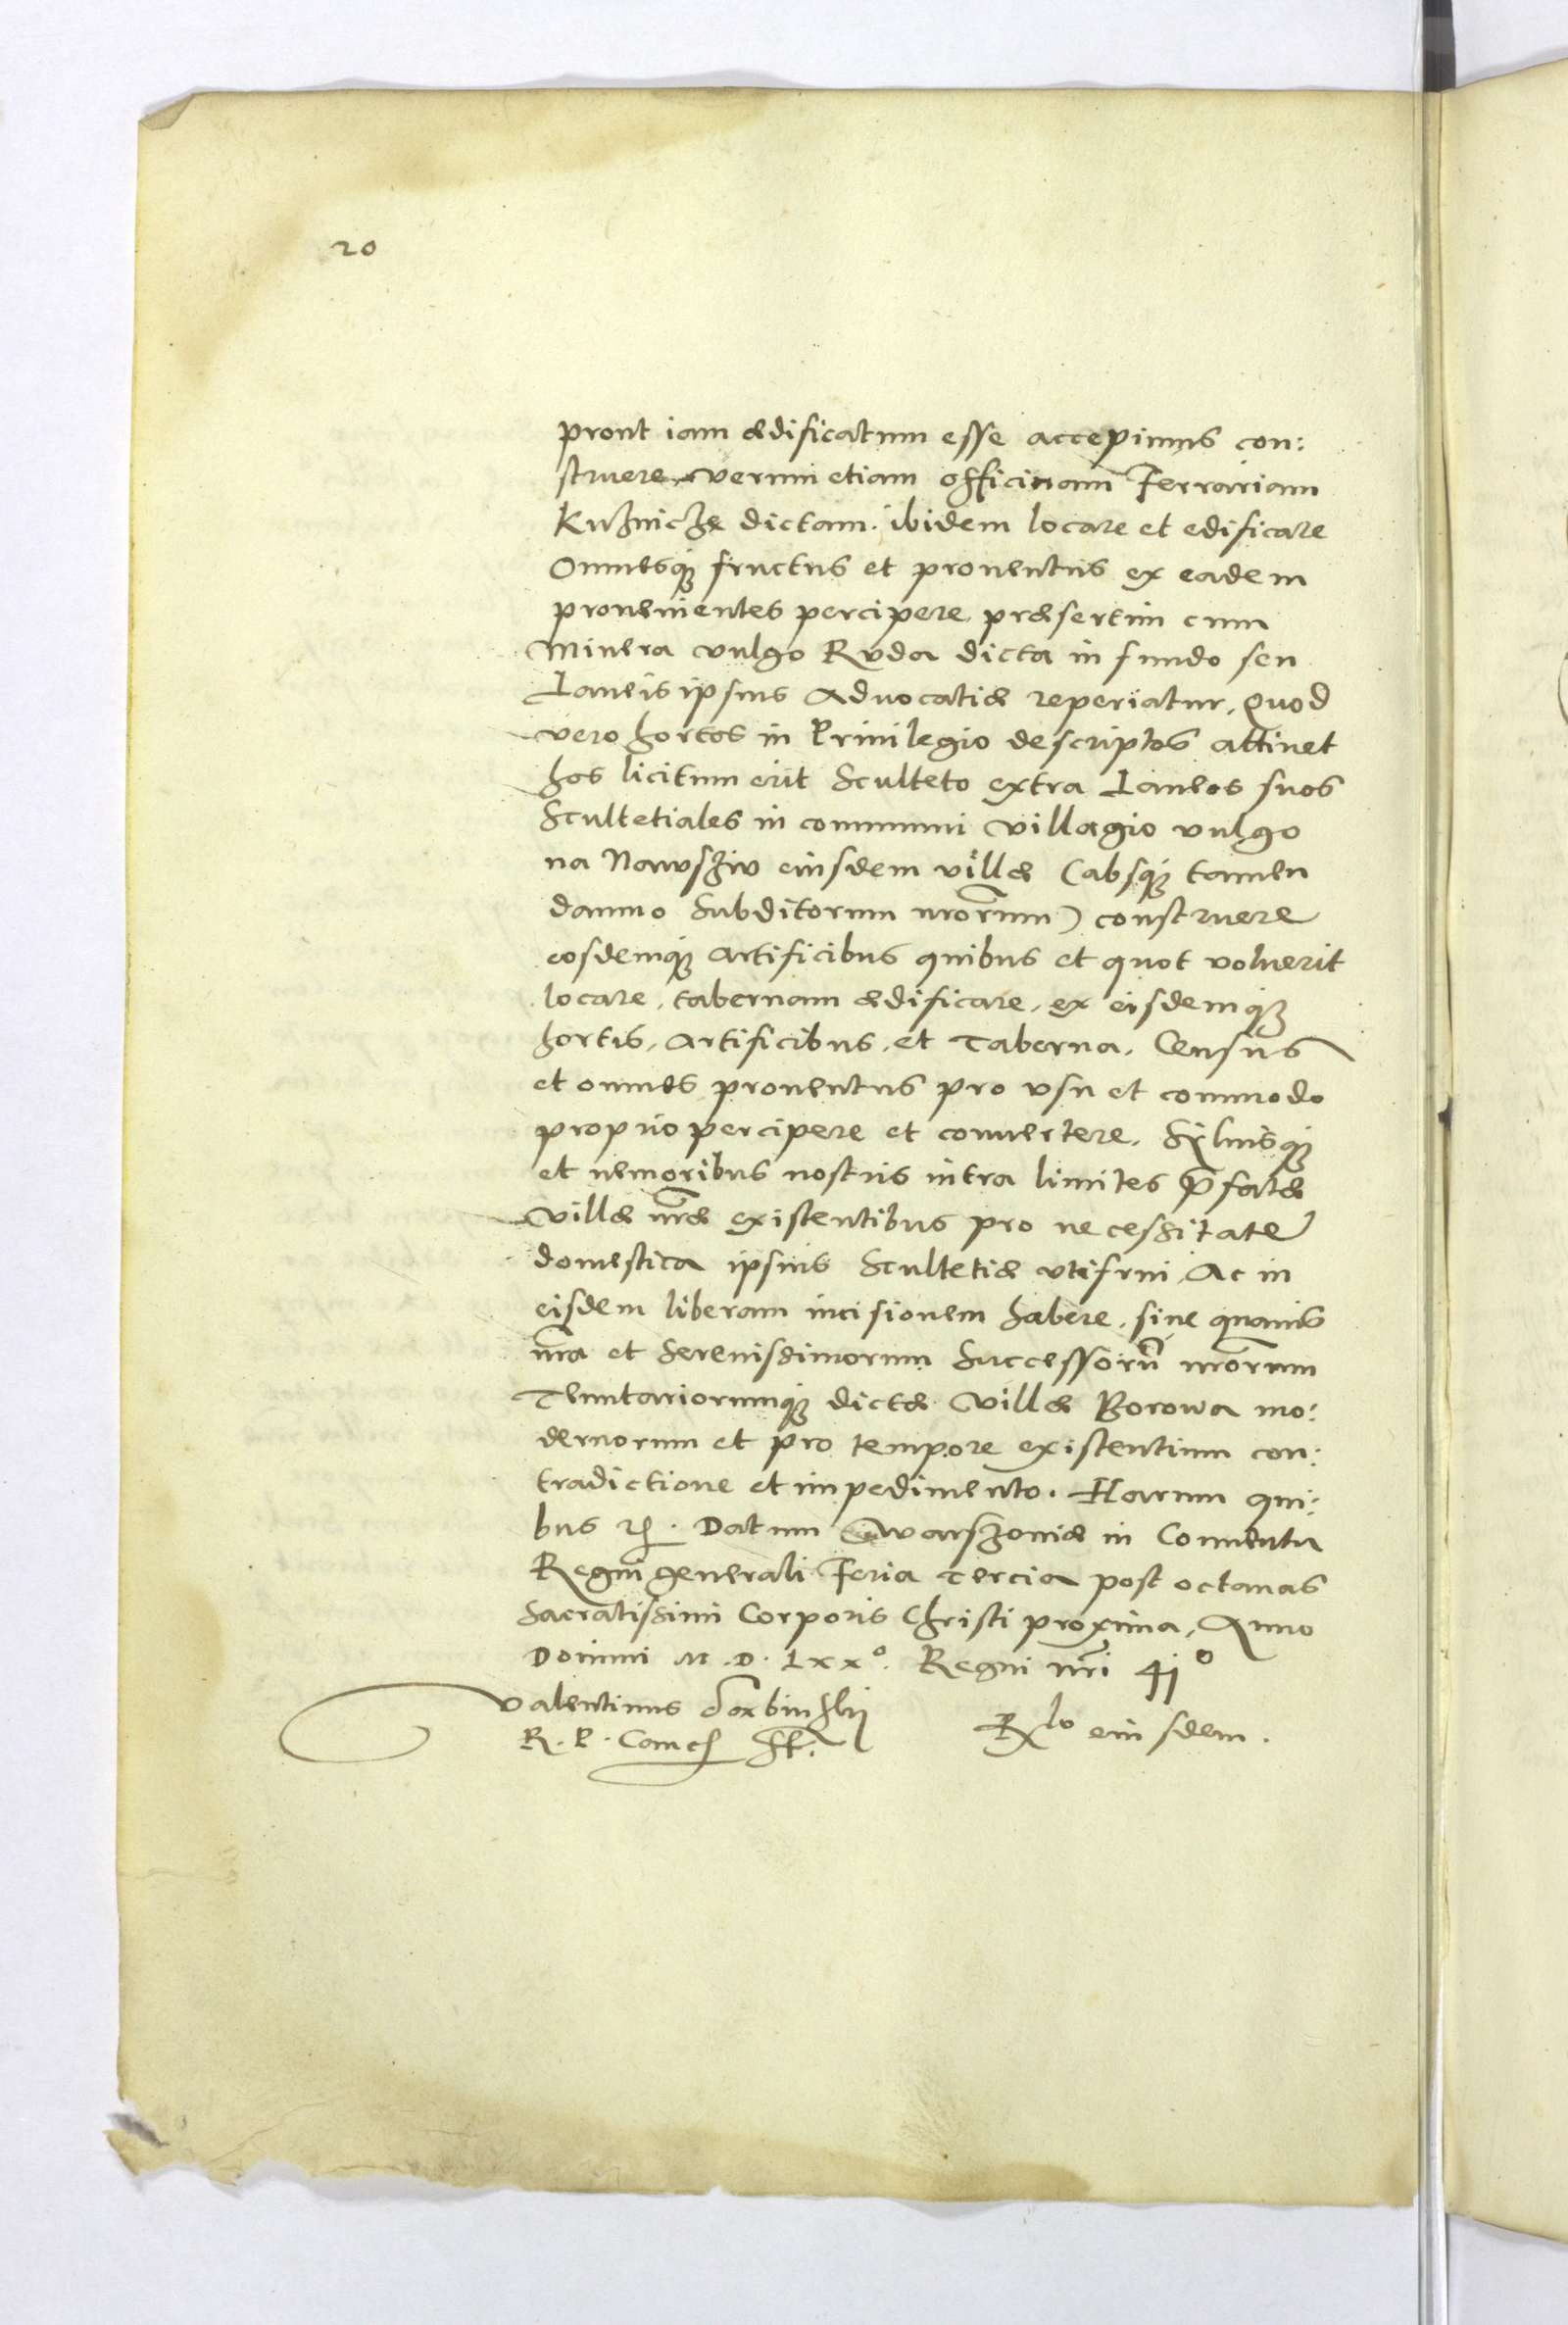 20
prout iam ædificatum esse accepimus con:
struere verum etiam officinam Ferrariam
Kuznicze dictam. ibidem locare et edificare
Omnesq; fructus et prouentus ex eadem
prouenientes percipere præsertim cum
Minera vulgo Ruda dicta in fundo seu
Laneis ipsius Aduocatiæ reperiatur. Quod
vero hortos in Priuilegio descriptos attinet
hos licitum erit Sculteto extra Laneos suos
Scultetiales in communi villagio vulgo
na Nawsziu eiusdem villæ (absq; tamen
damno Subditorum nrorum) construere
eosdemq; artificibus quibus et quot voluerit
locare, tabernam ædificare, ex eisdemq;
hortis, Artificibus, et Taberna, Census
et omnes prouentus pro vsu et commodo
proprio percipere et conuertere. Syluisq;
et nemoribus nostris intra limites pfatæ
villæ nræ existentibus pro necessitate
domestica ipsius Scultetiæ vtifrui, Ac in
eisdem liberam incisionem habere, sine quauis
nra et Serenissimorum Successorū nrorum
Tenutariorumq; dictæ villæ Borowa mo:
dernorum et pro tempore existentium con:
tradictione et impedimento. Harum qui:
bus rc. Datum Warszouiæ in Conuentu
Regni generali Feria Tercia post octauas
Sacratissimi Corporis Christi proxima, Anno
Domini M.D.Lxxº. Regni nri 41º
Valentinus Dembinskij
R. P. Canc sst.
Rlo eiusdem.